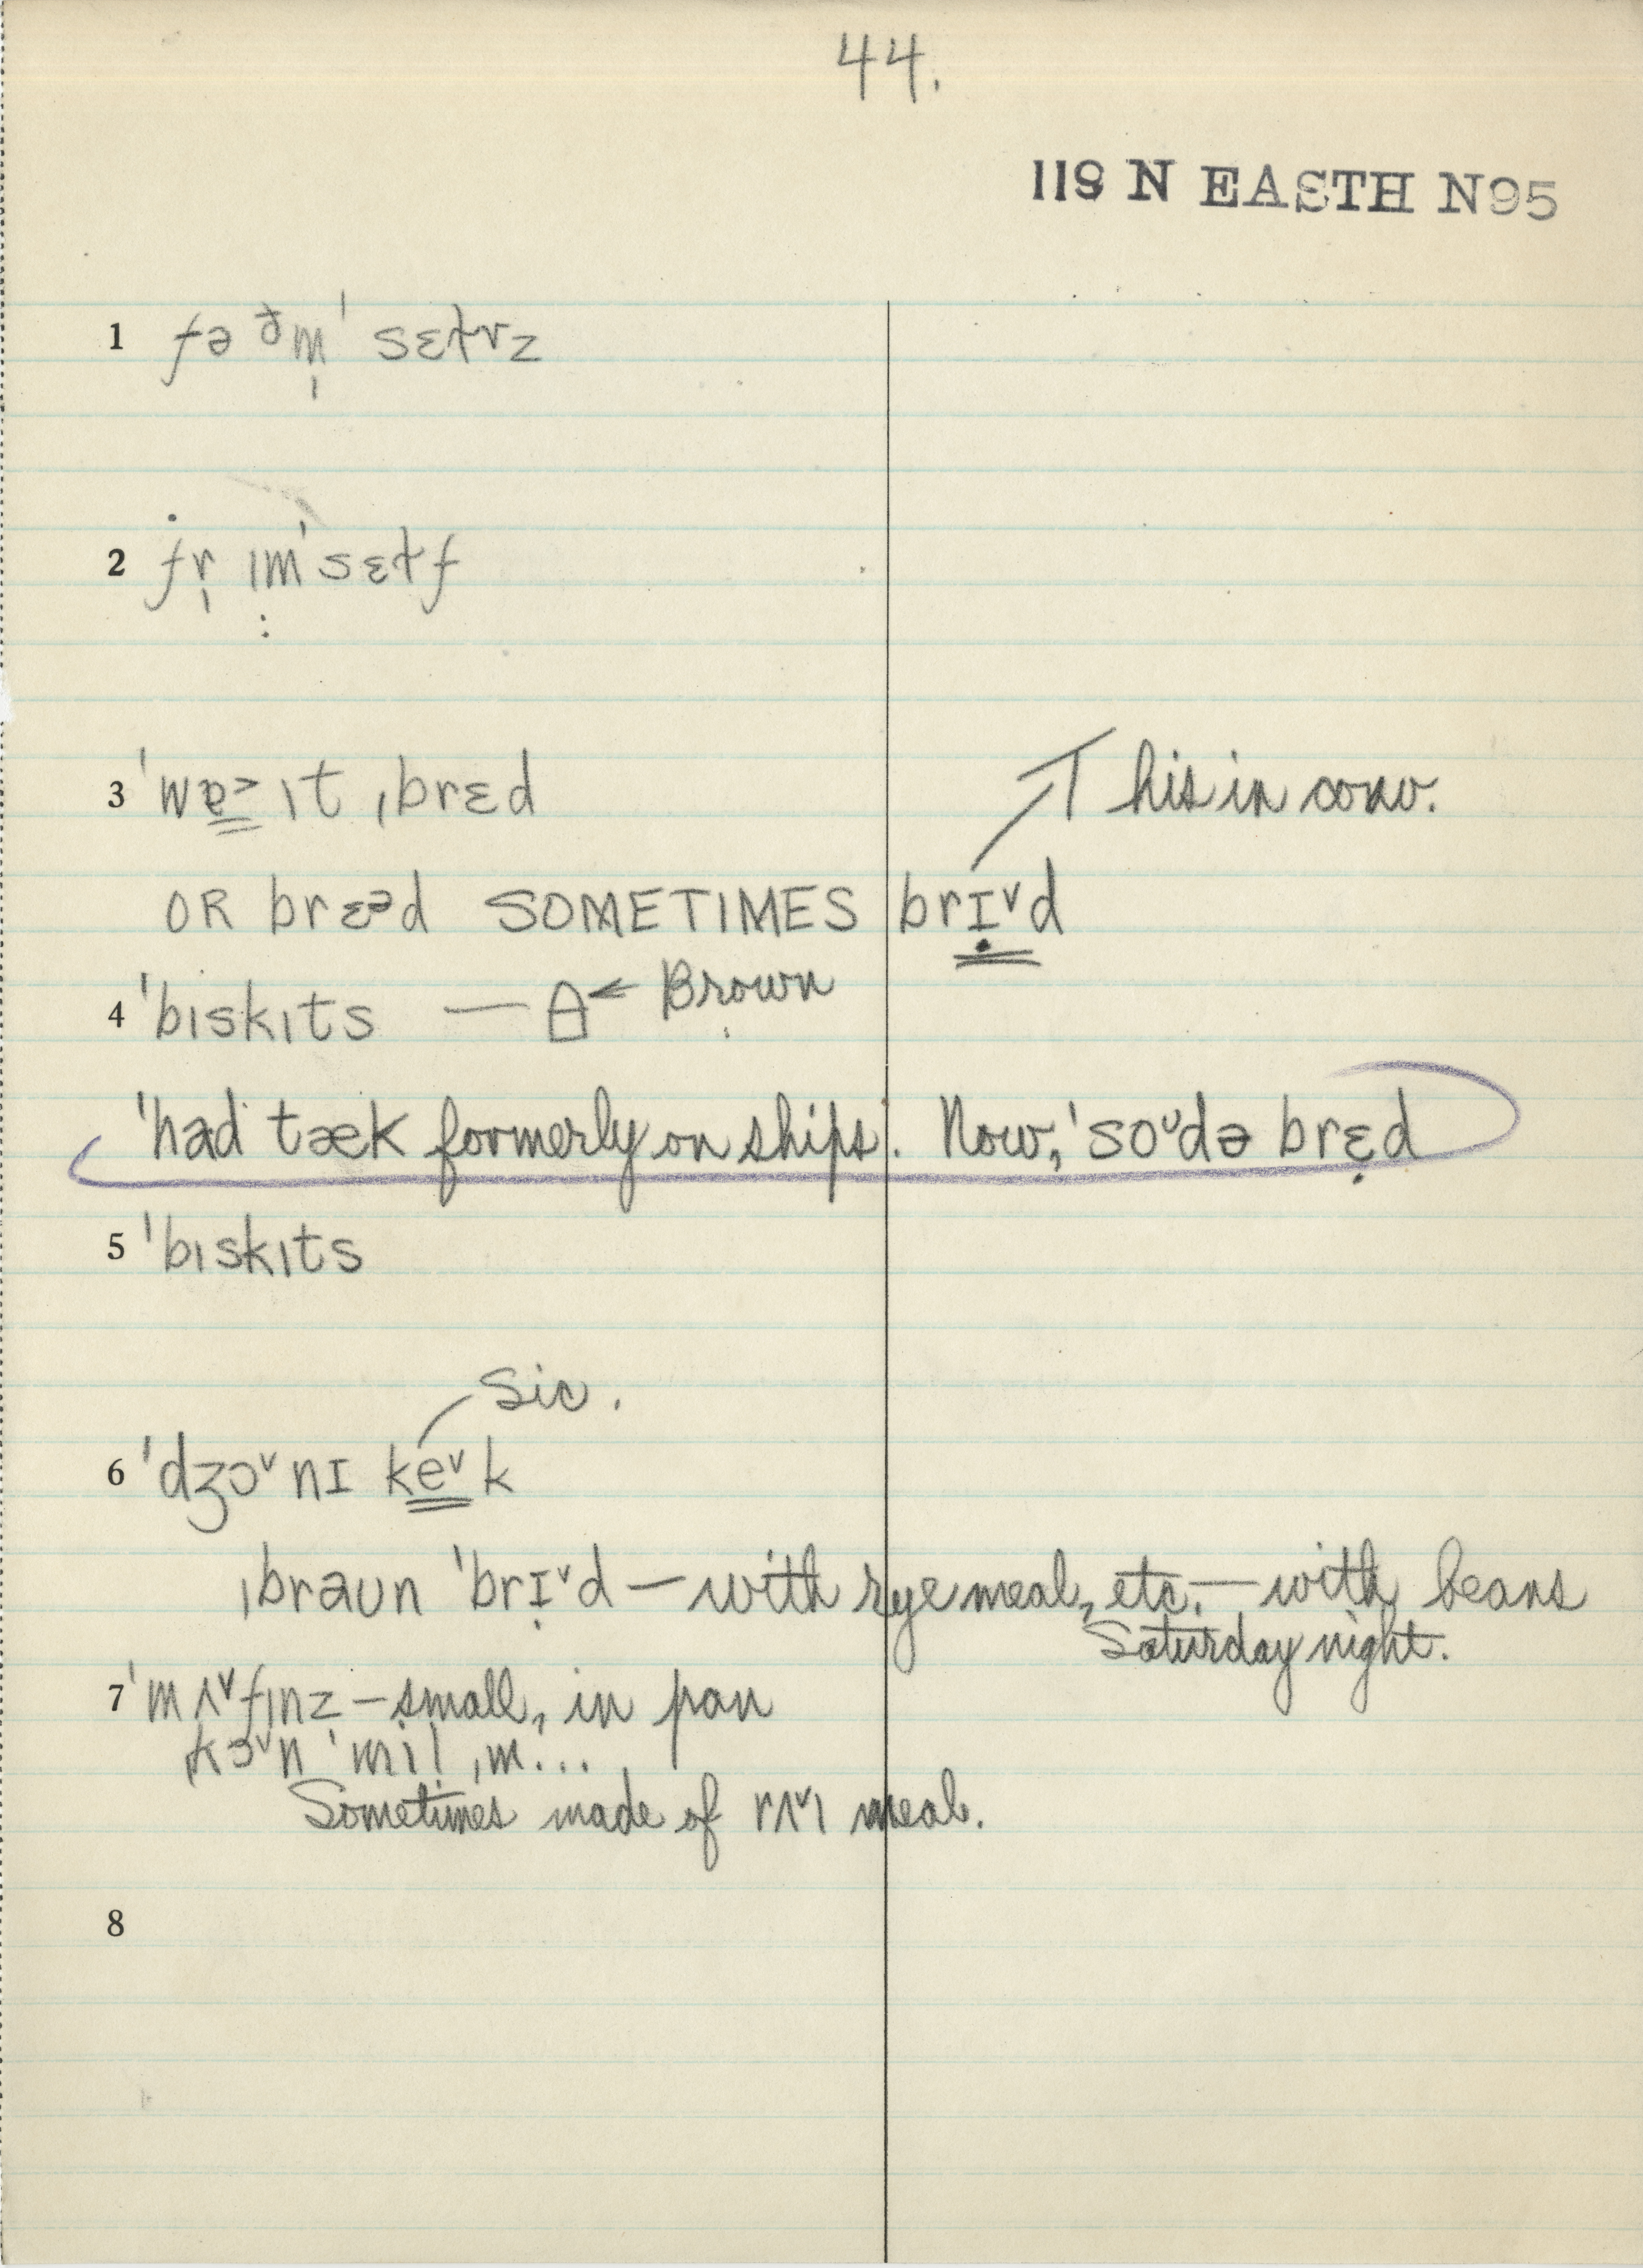 44.
119 N EASTH N95
1 fə ðm̩ˈ sɛɫvz
2 fr̩ ɪmˈsɛɫf
3 ˈwɐ˃ɪt ˌbrɛd
This in conv.
OR brɛᵊd SOMETIMES brɪ̣ˇd
4 ˈbɪskɪts — ← Brown
ˈhad tæk formerly on ships. Now, ˈsoᵘdə brɛ̣d
5 ˈbɪskɪts
Sic.
6 ˈdʒɔˇnɪ keˇk
ˌbraun ˈbrɪ̣ˇd — with rye meal, etc. — with beans
Saturday night.
7 ˈmʌˇfɪnz — small, in pan
kɔˇn ˈmil ˌm...
Sometimes made of rʌˇɪ meal.
8